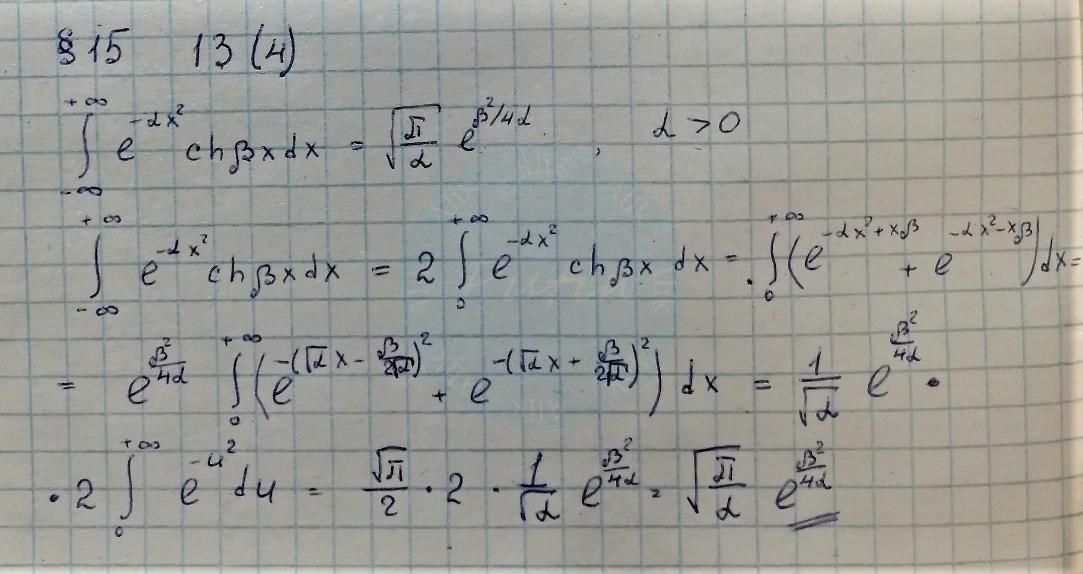 § 15 13 (4)
∫_{-∞}^{+∞} e^{-αx²} ch βx dx = √(π/α) e^{β²/4α}, α > 0
∫_{-∞}^{+∞} e^{-αx²} ch βx dx = 2 ∫_0^{+∞} e^{-αx²} ch βx dx = ∫_0^{+∞} (e^{-αx²+xβ} + e^{-αx²-xβ}) dx =
= e^{β²/4α} ∫_0^{+∞} (e^{-(√α x - β/2√α)²} + e^{-(√α x + β/2√α)²}) dx = 1/√α e^{β²/4α} ·
· 2 ∫_0^{+∞} e^{-u²} du = √π/2 · 2 · 1/√α e^{β²/4α} = √(π/α) e^{β²/4α}